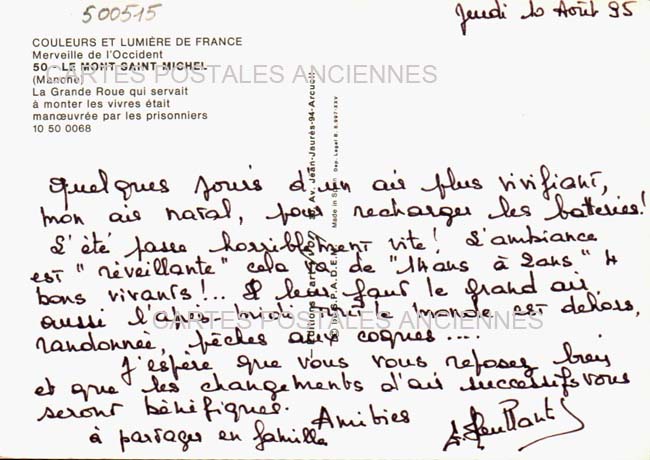 500515
Jeudi 10 Août 95
COULEURS ET LUMIÈRE DE FRANCE
Merveille de l'Occident
50 - LE MONT-SAINT-MICHEL
(Manche)
CARTES POSTALES ANCIENNES
La Grande Roue qui servait
à monter les vivres était
manœuvrée par les prisonniers
10 50 0068
Av. Jean-Jaurès-94-Arcueil
Made in Spain
Editions
S.P.A.D.E.M.
Quelques jours d'un air plus vivifiant,
mon air natal, pour recharger les batteries!
L'été passe horriblement vite! L'ambiance
est "réveillante" cela va de "14 ans à 2 ans" 4
bons vivants!... Il leur faut le grand air
aussi l'après-midi tout le monde est dehors,
CARTES POSTALES ANCIENNES
randonnée, pêches aux coques ....
J'espère que vous vous reposez bien
et que les changements d'air successifs vous
seront bénéfiques.
Amitiés
à partager en famille